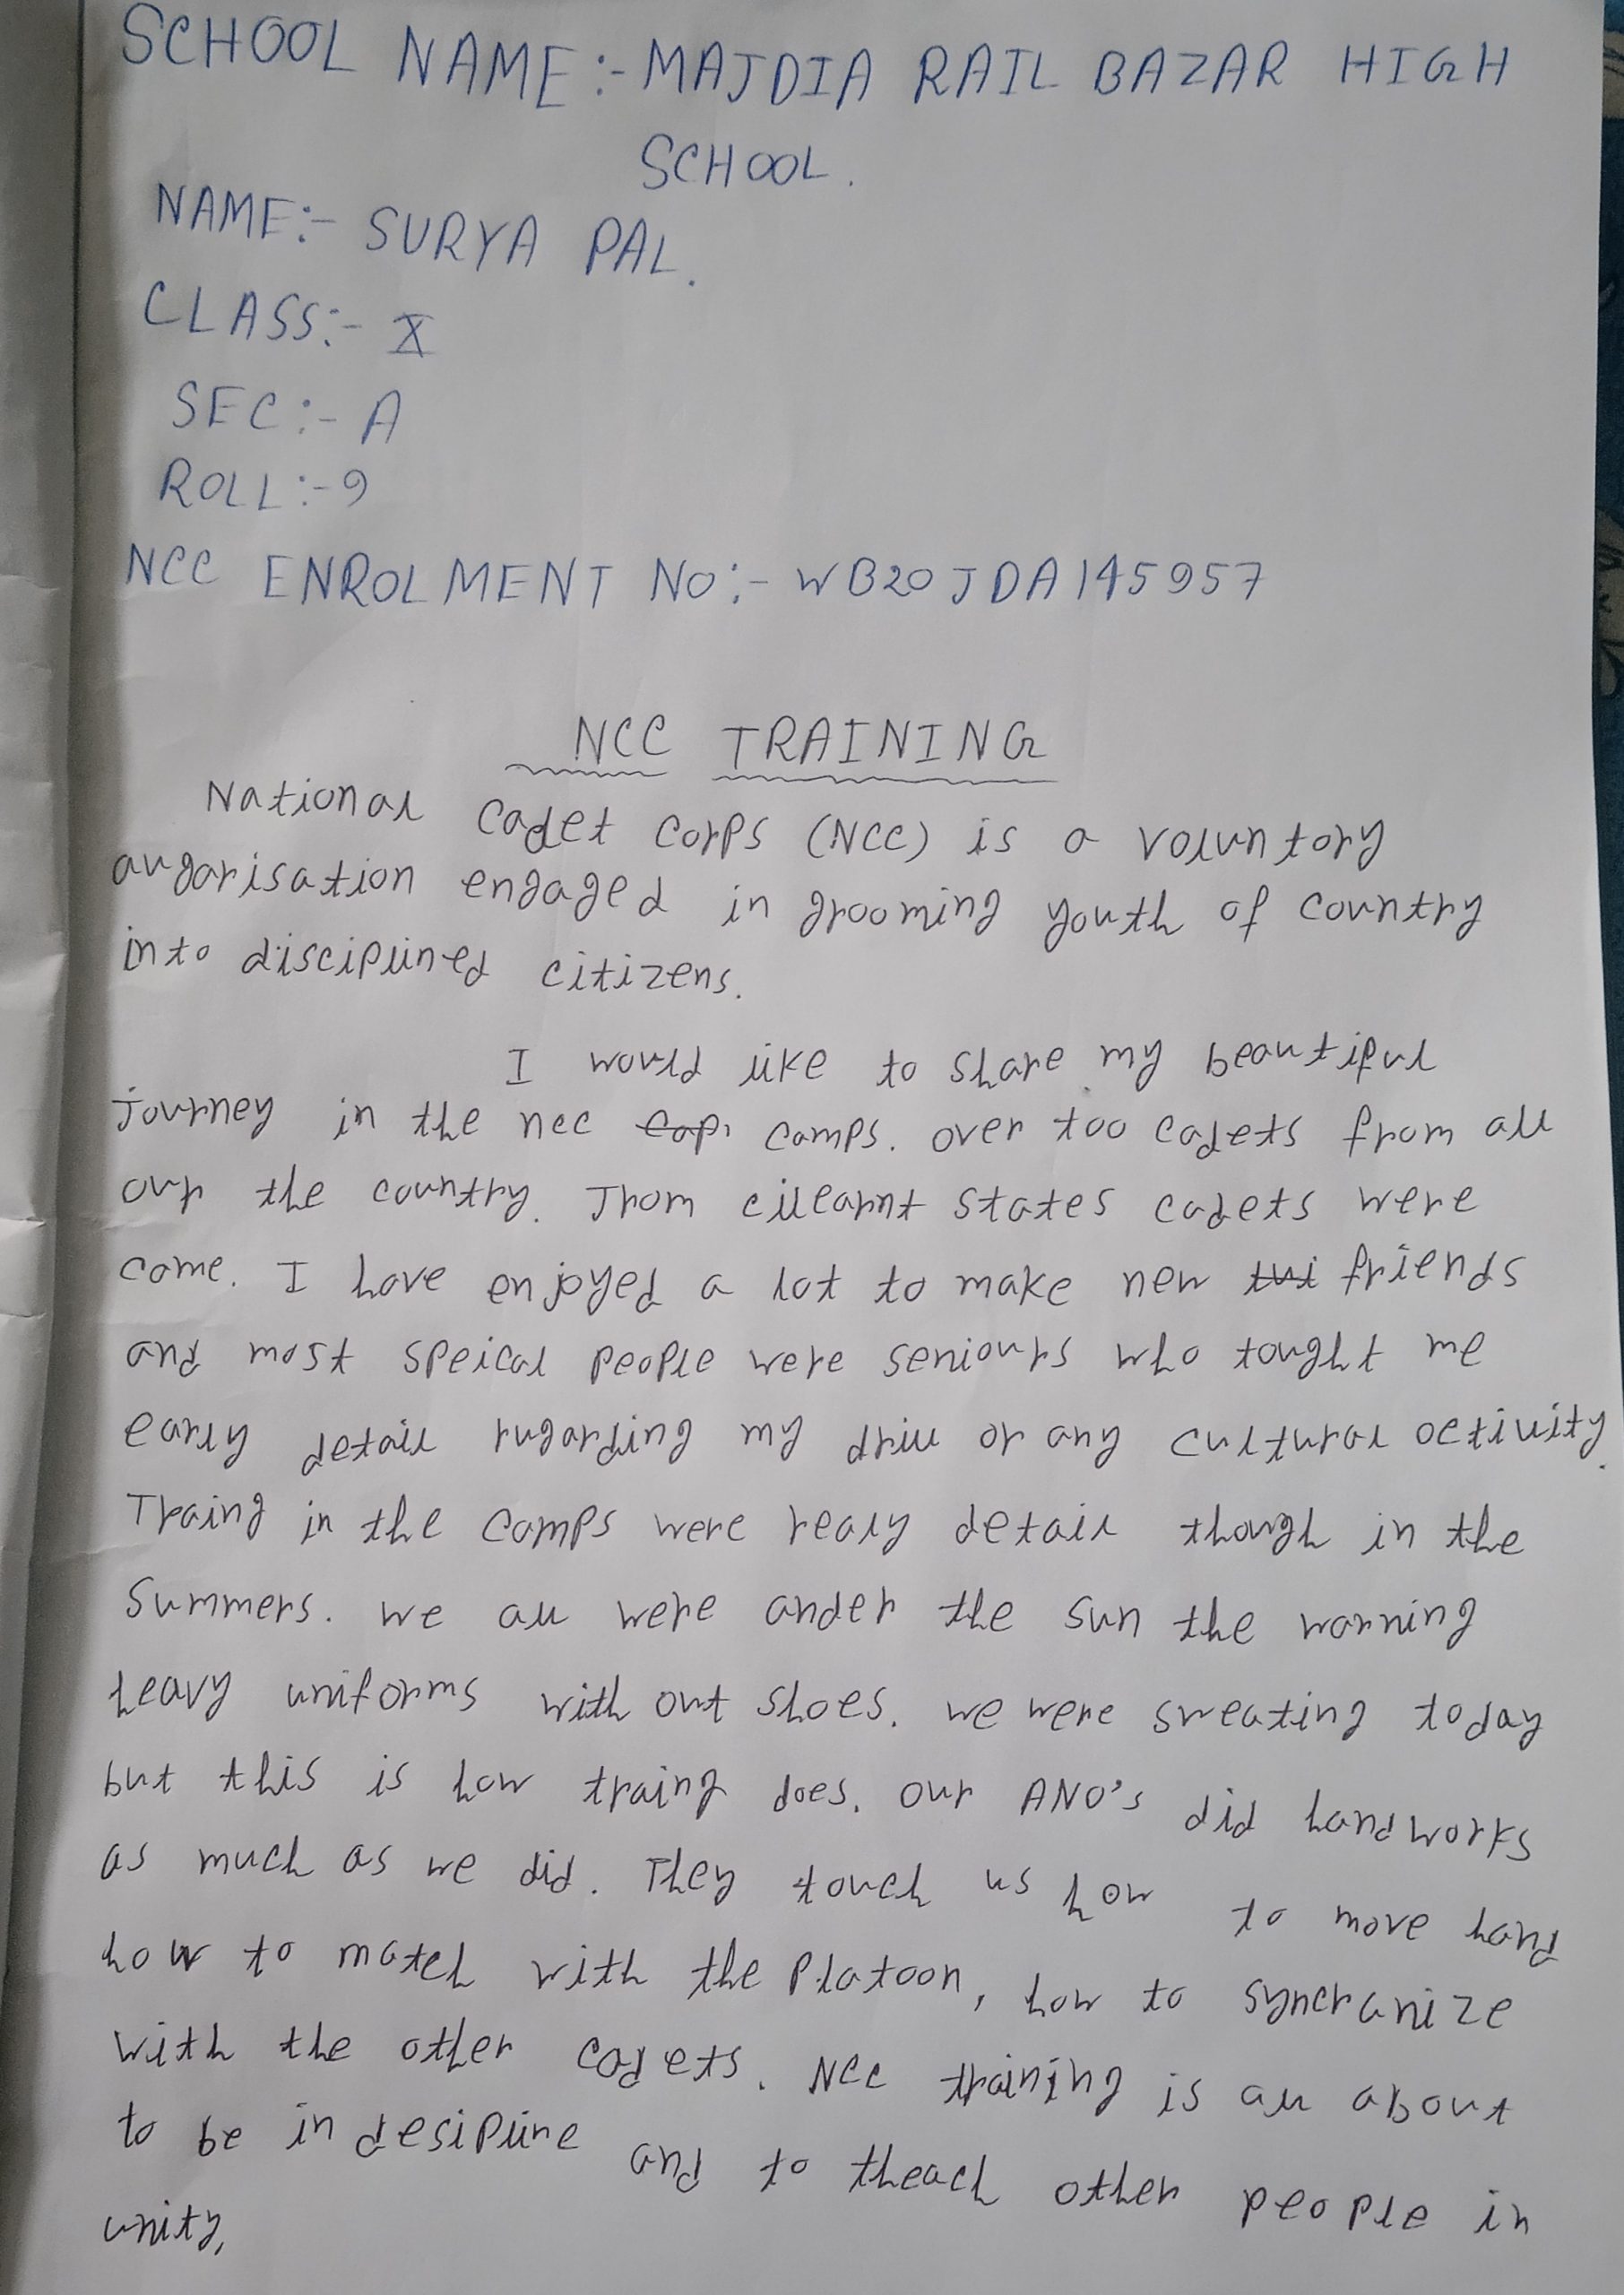 SCHOOL NAME:- MAJDIA RAIL BAZAR HIGH
SCHOOL.
NAME:- SURYA PAL.
CLASS:- X
SEC:- A
ROLL:-9
NCC ENROLMENT NO:- WB20JDA145957
NCC TRAINING
National Cadet Corps (NCC) is a voluntory
augarisation engaged in grooming youth of country
into disciplined citizens.
I would like to share my beautiful
journey in the ncc camps. over too cadets from all
our the country. Jrom states cadets were
came. I have enjoyed a lot to make new friends
and most speical people were seniours who tought me
early detail rugarding my drill or any cultural activity.
Traing in the camps were realy detail though in the
Summers. we all were ander the sun the warning
heavy uniforms with out shoes. we were sweating today
but this is how traing does. our ANO's did handworks
as much as we did. They touch us how to move hand
how to match with the Platoon, how to syncranize
with the other cadets. NCC training is all about
to be in desipline and to theach other people in
unity.